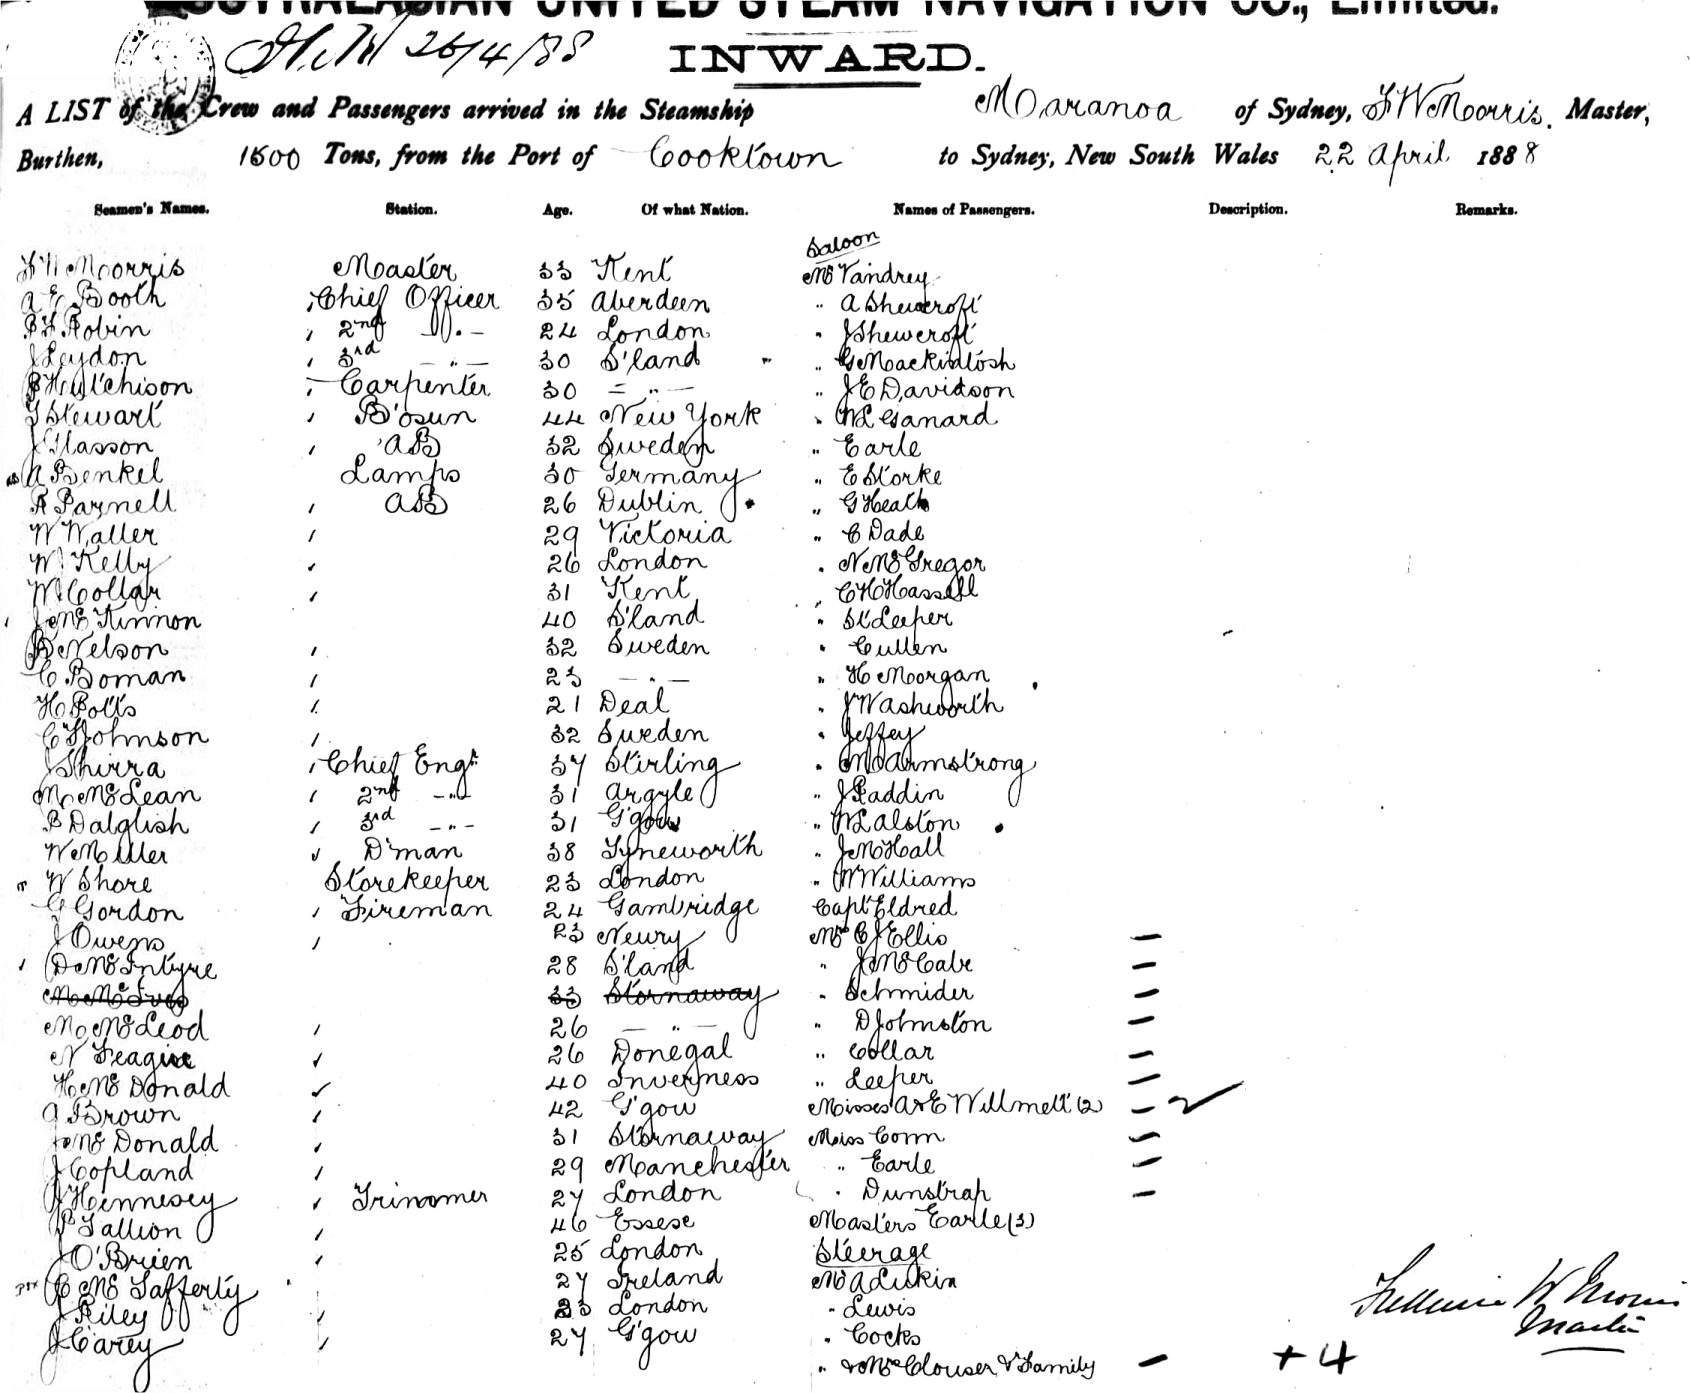 AUSTRALASIAN UNITED STEAM NAVIGATION CO., Limited.
26/4/88
INWARD.
A LIST of the Crew and Passengers arrived in the Steamship Maranoa of Sydney, F W Morris. Master,
Burthen, 1500 Tons, from the Port of Cooktown to Sydney, New South Wales 22 April 1888
Seamen's Names. Station. Age. Of what Nation. Names of Passengers. Description. Remarks.
Saloon
F W Morris Master 33 Kent Mr Vandrey
A E Booth Chief Officer 35 Aberdeen " A Shewcroft
Robin 2nd 24 London " J Shewcroft
J Leydon 3rd — " — 30 S'land " G Mackintosh
P Hutchison Carpenter 30 — " — " J E Davidson
J Stewart B'osun 44 New York " W L Ganard
J Glasson AB 32 Sweden " Earle
A Benkel Lamps 30 Germany " E Storke
R Parnell AB 26 Dublin " G Heath
W Waller 29 Victoria " C Dade
W Kelly 26 London " N McGregor
W Collar 31 Kent " C H Hassell
J McKinnon 40 S'land " St Leeper
B Nelson 32 Sweden " Cullen
C Boman 23 — " — " H Morgan
H Potts 21 Deal " J Washworth
C Johnson 32 Sweden " Jeffey
J Shirra Chief Engr 37 Stirling " Armstrong
M McLean 2nd — " — 31 Argyle " J Paddin
P Dalglish 3rd — " — 31 G'gow " W L Alston
W Miller D'man 38 Tyneworth " J McHall
W Shore Storekeeper 23 London " W Williams
G Gordon Fireman 24 Cambridge Capt Eldred
J Owens 23 Newry Mrs C J Ellis —
D McIntyre 28 S'land " J McCabe —
33 Stornaway " Schmider —
M McLeod 26 — " — " D Johnston —
N Teague 26 Donegal " Collar —
H McDonald 40 Inverness " Leeper —
A Brown 42 G'gow Misses A & E Willmett (2) —
J McDonald 31 Stornaway Miss Conn —
J Copland 29 Manchester " Earle —
J Hennesey Trimmer 27 London " Dunstrap —
P Tallion 46 Essex Masters Earle (3)
J O'Brien 25 London Steerage
C McLafferty 27 Ireland Mr A Liskin
J Riley 23 London " Lewis
J Carey 27 G'gow " Cocks
" & Mrs Clouser & Family — + 4
Frederic W Morris
Master